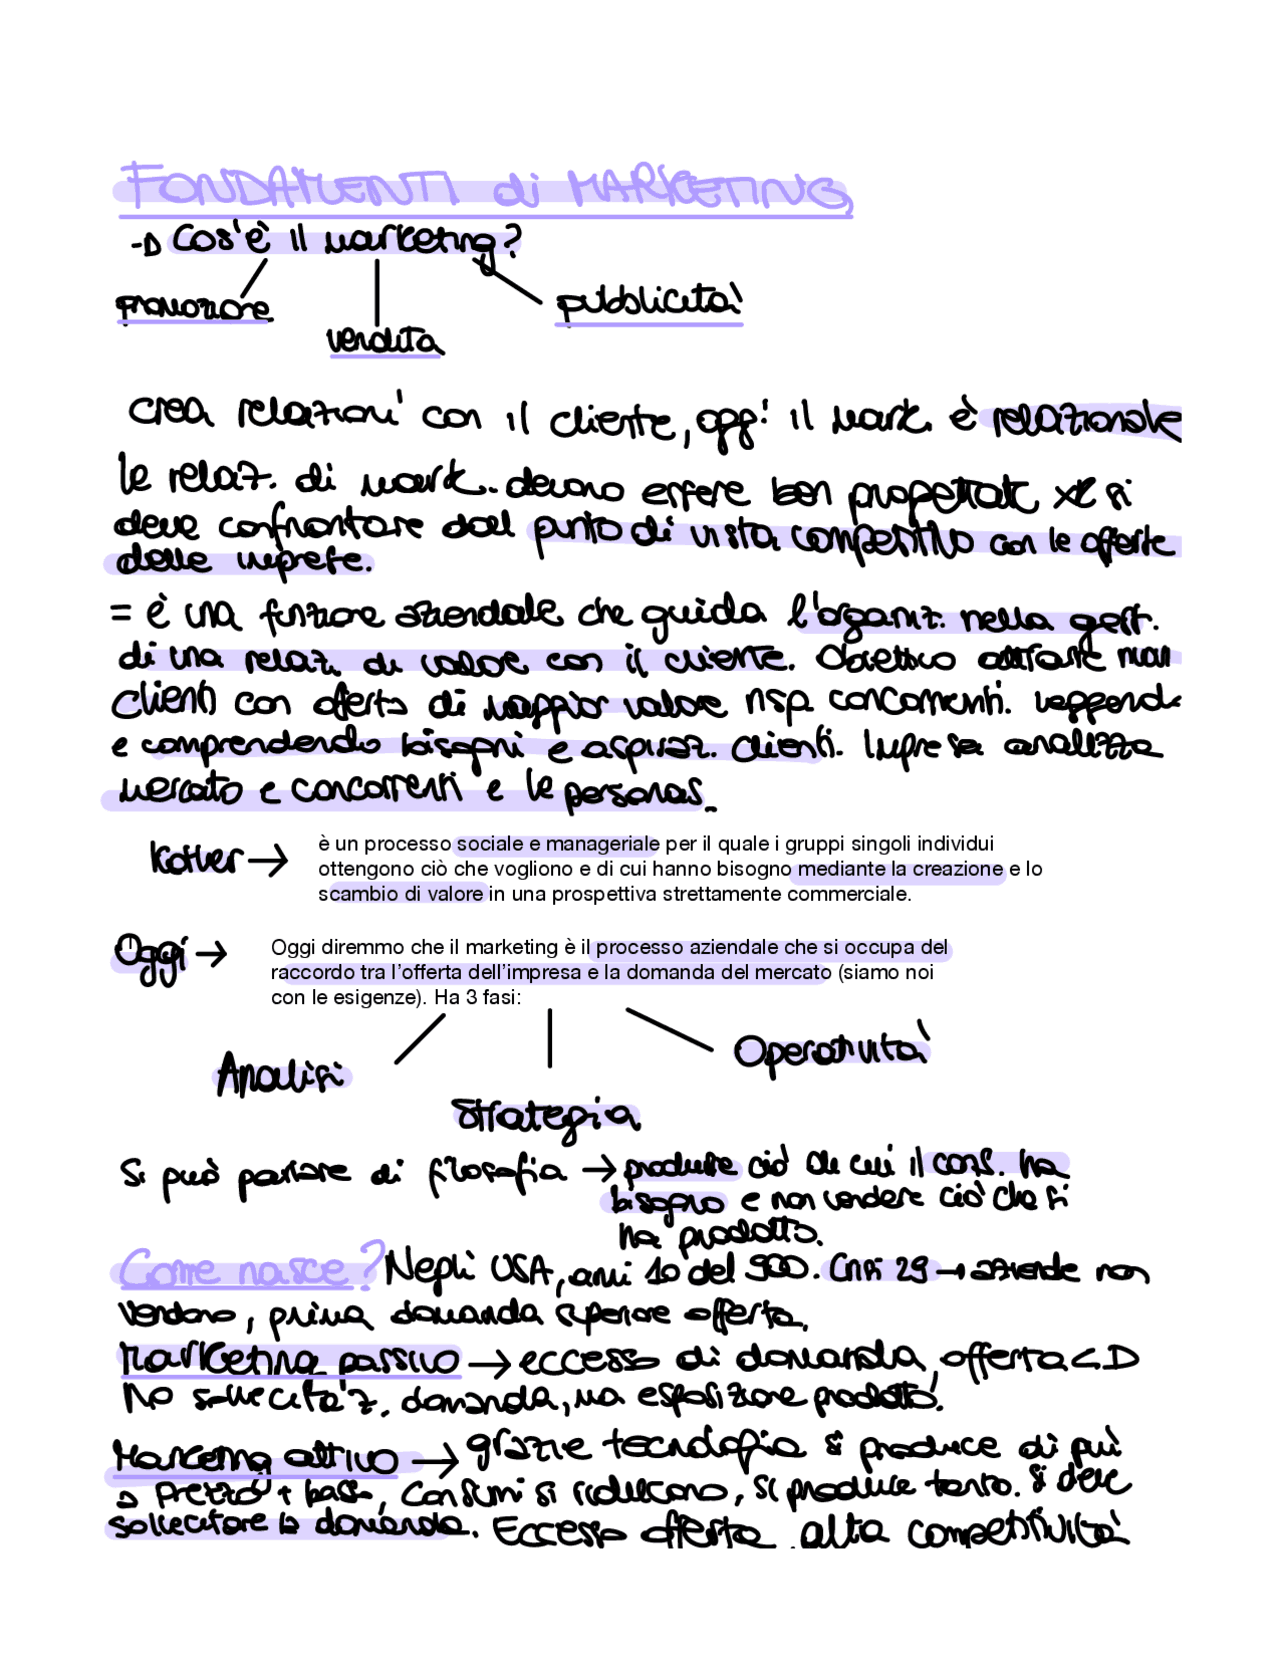 FONDAMENTI di MARKETING
→ Cos'è il marketing?
promozione
pubblicità
vendita
crea relazioni con il cliente, oggi il mark. è relazionale
le relaz. di mark. devono essere ben progettate xk si
deve confrontare dal punto di vista competitivo con le offerte
delle imprese.
= è una funzione aziendale che guida l'organiz. nella gest.
di una relaz. di valore con il cliente. Obiettivo attrarre nuovi
clienti con offerta di maggior valore risp. concorrenti. Leggendo
e comprendendo bisogni e aspiraz. clienti. Impresa analizza
mercato e concorrenti e le personas.
Kotler →
è un processo sociale e manageriale per il quale i gruppi singoli individui
ottengono ciò che vogliono e di cui hanno bisogno mediante la creazione e lo
scambio di valore in una prospettiva strettamente commerciale.
Oggi →
Oggi diremmo che il marketing è il processo aziendale che si occupa del
raccordo tra l'offerta dell'impresa e la domanda del mercato (siamo noi
con le esigenze). Ha 3 fasi:
Operatività
Analisi
Strategia
Si può parlare di filosofia → produrre ciò di cui il cons. ha
bisogno e non vendere ciò che si
ha prodotto.
Come nasce? Negli USA, anni 10 del 900. Crisi 29 → aziende non
vendono, prima domanda superiore offerta.
Marketing passivo → eccesso di domanda, offerta < D
No sollecitaz. domanda, ma esposizione prodotto.
Marketing attivo → grazie tecnologia si produce di più
→ Prezzo + basso, consumi si riducono, si produce tanto. Si deve
sollecitare la domanda. Eccesso offerta alta competitività